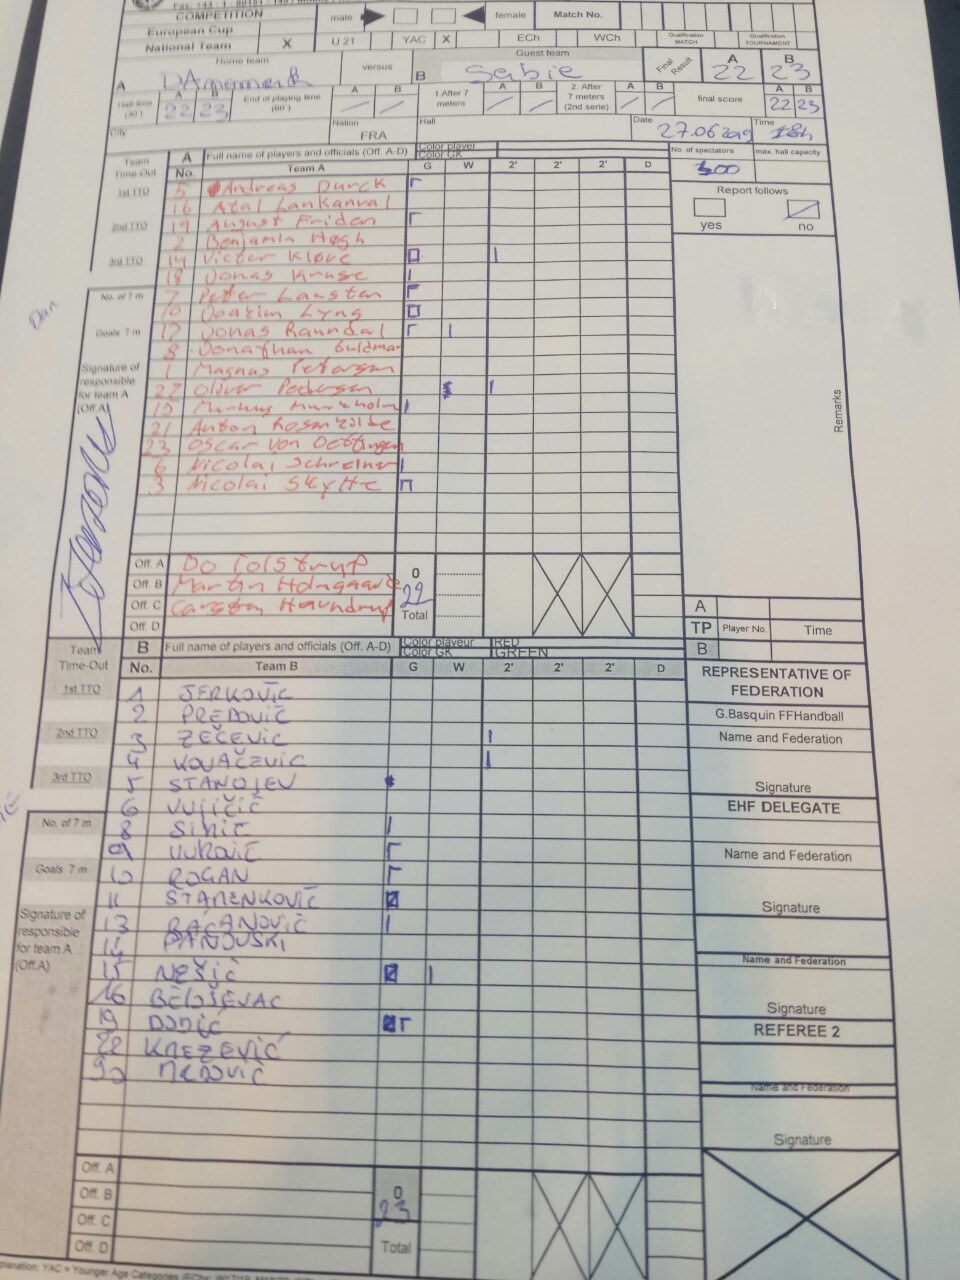 COMPETITION
European Cup
National Team X
male female Match No.
U 21 YAC X ECh WCh Qualification MATCH Qualification TOURNAMENT
Home team versus Guest team
A B Serbie
Final Result A 22 B 23
Half-time (30') A 22 B 23 End of playing time (60') A / B / 1.After 7 meters A / B / 2. After 7 meters (2nd serie) A / B / final score A 22 B 23
City Nation FRA Hall Date 27.06 2019 Time 18h
Team Time-Out A Full name of players and officials (Off. A-D) Color player Color GK
No. Team A G W 2' 2' 2' D
No. of spectators 300 max. hall capacity
Report follows
yes no
1st TTO
2nd TTO
3rd TTO
5 Andreas Durck
16 Atal Lankanval
19 August Friden
2 Benjamin Høgh
14 Victor Kløve
18 Jonas Kruse
7 Peter Lausten
10 Joakim Lyng
17 Jonas Raundal
8 Jonathan Guldman
1 Magnus Petersen
22 Oliver Pedersen
15 Markus Munkholm
21 Anton
23 Oscar Von Oettingen
6 Nicolai Schreiner
3 Nicolai Skytte
No. of 7 m
Goals 7 m
Signature of responsible for team A (Off.A)
Remarks
Dan
Off. A Bo Tolstrup
Off. B Martin Holmgaard
Off. C Carsten
Off. D
0
22
Total
A
TP Player No. Time
B
Team Time-Out B Full name of players and officials (Off. A-D) Color playeur RED
Color GK GREEN
No. Team B G W 2' 2' 2' D
1st TTO
2nd TTO
3rd TTO
1 JERKOVIĆ
2 PREDOVIĆ
3 ZEČEVIĆ
4 KOVAČEVIC
5 STANOJEV
6 VUJIČIĆ
8 SIMIĆ
9 VUKOVIĆ
10 ROGAN
11 STAMENKOVIĆ
13 RAČANOVIĆ
14 PANOVSKI
15 NEŠIĆ
16 BELOŠEVAC
19 DODIĆ
22 KNEZEVIĆ
90 MEDOVIĆ
No. of 7 m
Goals 7 m
Signature of responsible for team A (Off.A)
Off. A
Off. B
Off. C
Off. D
0
23
Total
REPRESENTATIVE OF FEDERATION
G.Basquin FFHandball
Name and Federation
Signature
EHF DELEGATE
Name and Federation
Signature
Name and Federation
Signature
REFEREE 2
Name and Federation
Signature